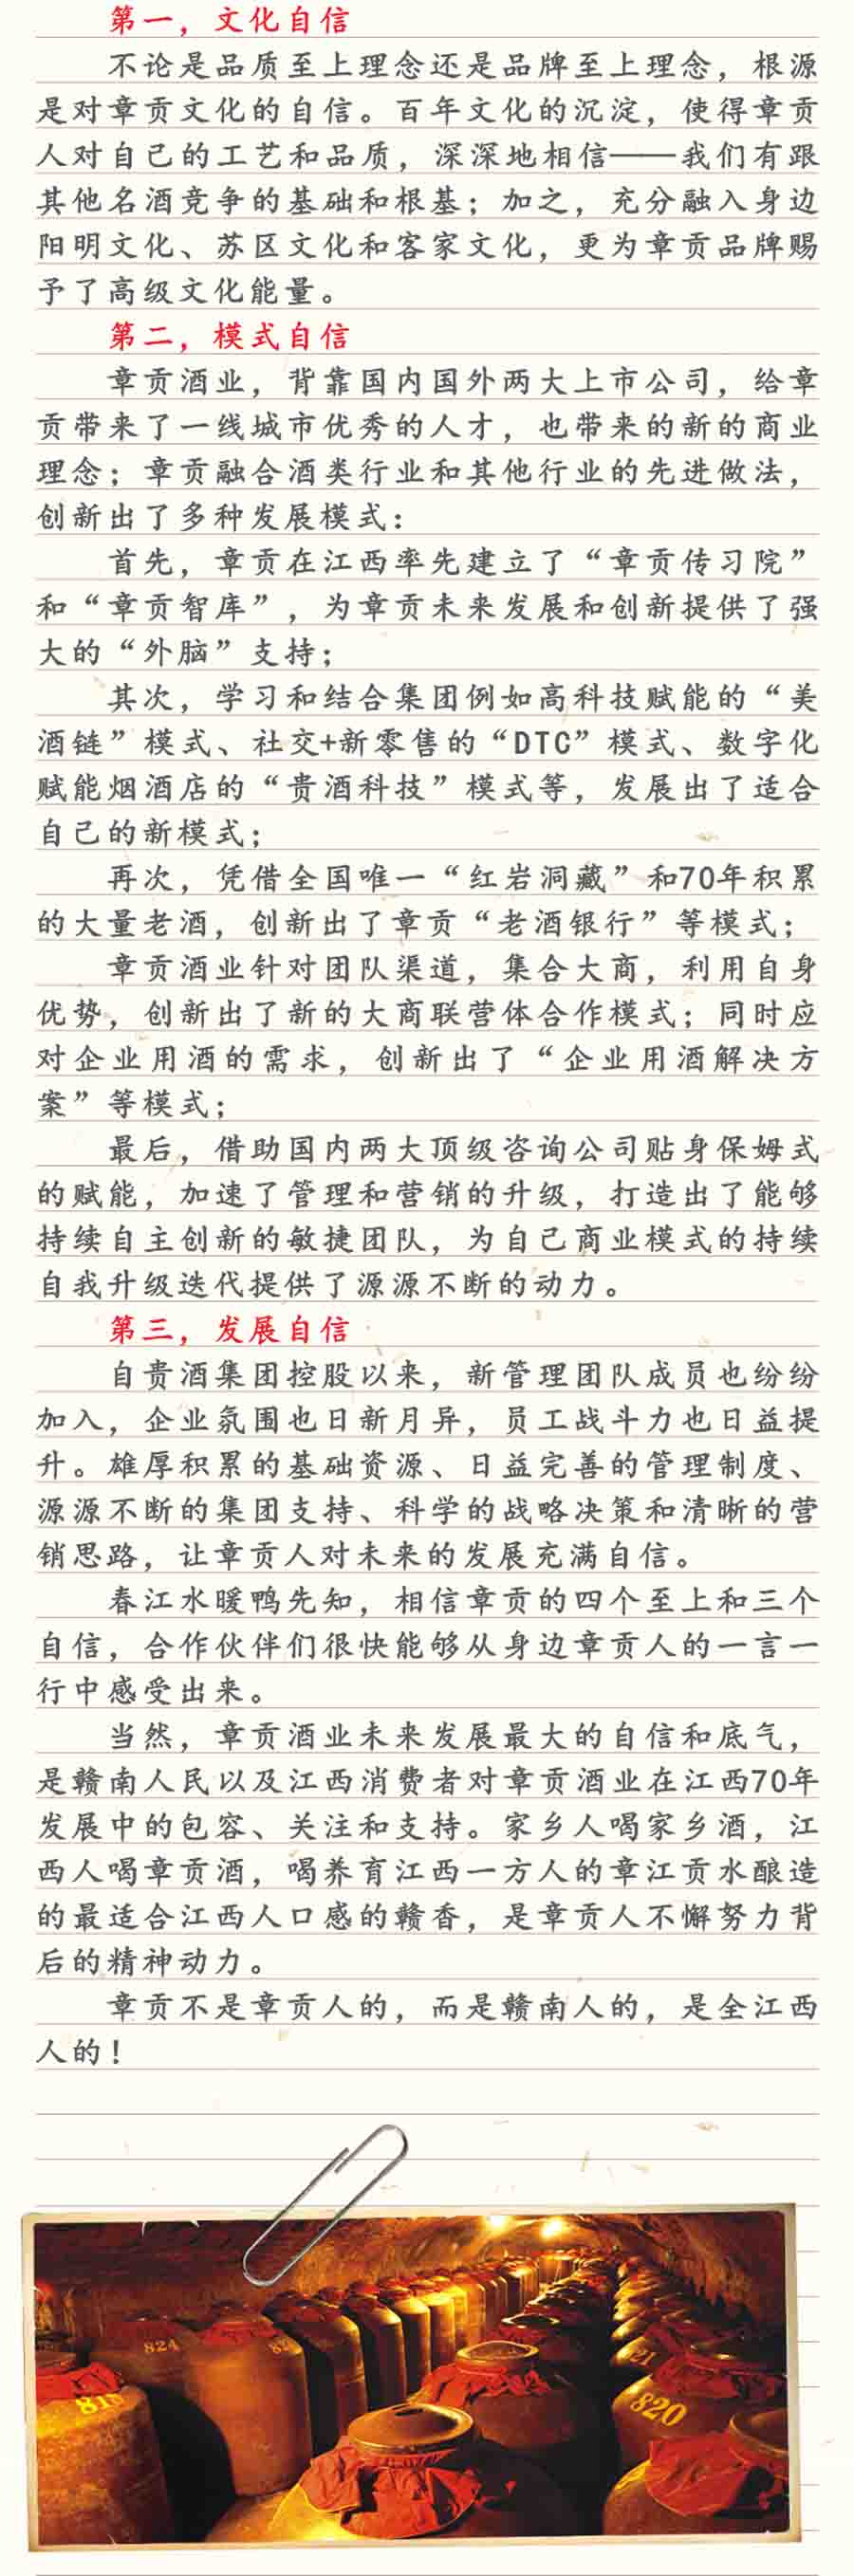 第一，文化自信
不论是品质至上理念还是品牌至上理念，根源
是对章贡文化的自信。百年文化的沉淀，使得章贡
人对自己的工艺和品质，深深地相信——我们有跟
其他名酒竞争的基础和根基；加之，充分融入身边
阳明文化、苏区文化和客家文化，更为章贡品牌赐
予了高级文化能量。
第二，模式自信
章贡酒业，背靠国内国外两大上市公司，给章
贡带来了一线城市优秀的人才，也带来的新的商业
理念；章贡融合酒类行业和其他行业的先进做法，
创新出了多种发展模式：
首先，章贡在江西率先建立了“章贡传习院”
和“章贡智库”，为章贡未来发展和创新提供了强
大的“外脑”支持；
其次，学习和结合集团例如高科技赋能的“美
酒链”模式、社交+新零售的“DTC”模式、数字化
赋能烟酒店的“贵酒科技”模式等，发展出了适合
自己的新模式；
再次，凭借全国唯一“红岩洞藏”和70年积累
的大量老酒，创新出了章贡“老酒银行”等模式；
章贡酒业针对团队渠道，集合大商，利用自身
优势，创新出了新的大商联营体合作模式；同时应
对企业用酒的需求，创新出了“企业用酒解决方
案”等模式；
最后，借助国内两大顶级咨询公司贴身保姆式
的赋能，加速了管理和营销的升级，打造出了能够
持续自主创新的敏捷团队，为自己商业模式的持续
自我升级迭代提供了源源不断的动力。
第三，发展自信
自贵酒集团控股以来，新管理团队成员也纷纷
加入，企业氛围也日新月异，员工战斗力也日益提
升。雄厚积累的基础资源、日益完善的管理制度、
源源不断的集团支持、科学的战略决策和清晰的营
销思路，让章贡人对未来的发展充满自信。
春江水暖鸭先知，相信章贡的四个至上和三个
自信，合作伙伴们很快能够从身边章贡人的一言一
行中感受出来。
当然，章贡酒业未来发展最大的自信和底气，
是赣南人民以及江西消费者对章贡酒业在江西70年
发展中的包容、关注和支持。家乡人喝家乡酒，江
西人喝章贡酒，喝养育江西一方人的章江贡水酿造
的最适合江西人口感的赣香，是章贡人不懈努力背
后的精神动力。
章贡不是章贡人的，而是赣南人的，是全江西
人的！
824
820